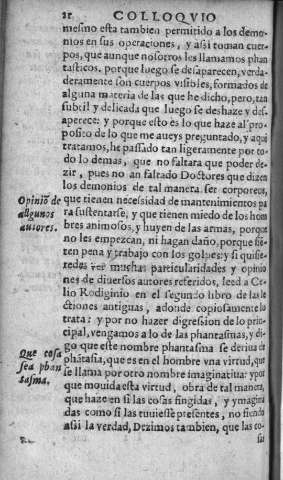 21 COLLOQVIO
mesmo esta tambien permitido a los demo-
nios en sus operaciones, y assi toman cuer-
pos, que aunque nosotros les llamamos phan
tasticos. porque luego se desaparecen, verda-
deramente son cuerpos visibles, formados de
alguna materia de las que he dicho, pero, tan
subtil y delicada que luego se deshaze y des-
aparece: y porque esto es lo que haze al pro-
posito de lo que me aueys preguntado, y aqui
tratamos, he passado tan ligeramente por to-
do lo demas, que no faltara que poder de-
zir, pues no an faltado Doctores que dizen
los demonios de tal manera ser corporeos,
Opiniõ de
algunos
autores.
que tienen necessidad de mantenimientos pa
ra sustentarse, y que tienen miedo de los hom
bres animosos, y huyen de las armas, porque
no les empezcan, ni hagan daño, porque siẽ-
ten pena y trabajo con los golpes: y si quisie-
redes ver muchas particularidades y opinio
nes de diuersos autores referidos, leed a Ce-
lio Rodiginio en el segundo libro de las le
ctiones antiguas, adonde copiosamente lo
trata: y por no hazer digression de lo prin-
cipal, vengamos a lo de las phantasmas, y di-
Que cosa
sea phan
tasma.
go que este nombre phantasma se deriua de
phãtasia, que es en el hombre vna virtud, que
se llama por otro nombre imaginatiua: y por
que mouida esta virtud, obra de tal manera,
que haze en si las cosas fingidas, y ymagina
das como si las tuuiesse presentes, no siendo
assi la verdad, Dezimos tambien, que las co-
sas